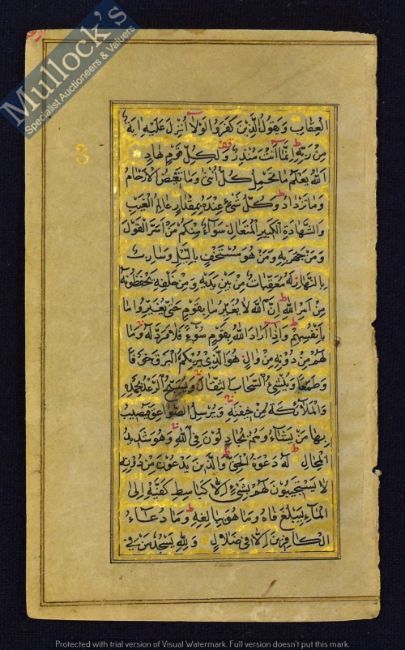 Mullock's
Specialist Auctioneers & Valuers
العقاب ويقول الذين كفروا لولا أنزل عليه آية
من ربه إنما أنت منذر ولكل قوم هاد
الله يعلم ما تحمل كل أنثى وما تغيض الأرحام
وما تزداد وكل شيء عنده بمقدار عالم الغيب
والشهادة الكبير المتعال سواء منكم من أسر القول
ومن جهر به ومن هو مستخف بالليل وسارب
بالنهار له معقبات من بين يديه ومن خلفه يحفظونه
من أمر الله إن الله لا يغير ما بقوم حتى يغيروا ما
بأنفسهم وإذا أراد الله بقوم سوءا فلا مرد له وما
لهم من دونه من وال هو الذي يريكم البرق خوفا
وطمعا وينشئ السحاب الثقال ويسبح الرعد بحمده
والملائكة من خيفته ويرسل الصواعق فيصيب
بها من يشاء وهم يجادلون في الله وهو شديد
المحال له دعوة الحق والذين يدعون من دونه
لا يستجيبون لهم بشيء إلا كباسط كفيه إلى
الماء ليبلغ فاه وما هو ببالغه وما دعاء
الكافرين إلا في ضلال ولله يسجد من في
Protected with trial version of Visual Watermark. Full version doesn't put this mark.